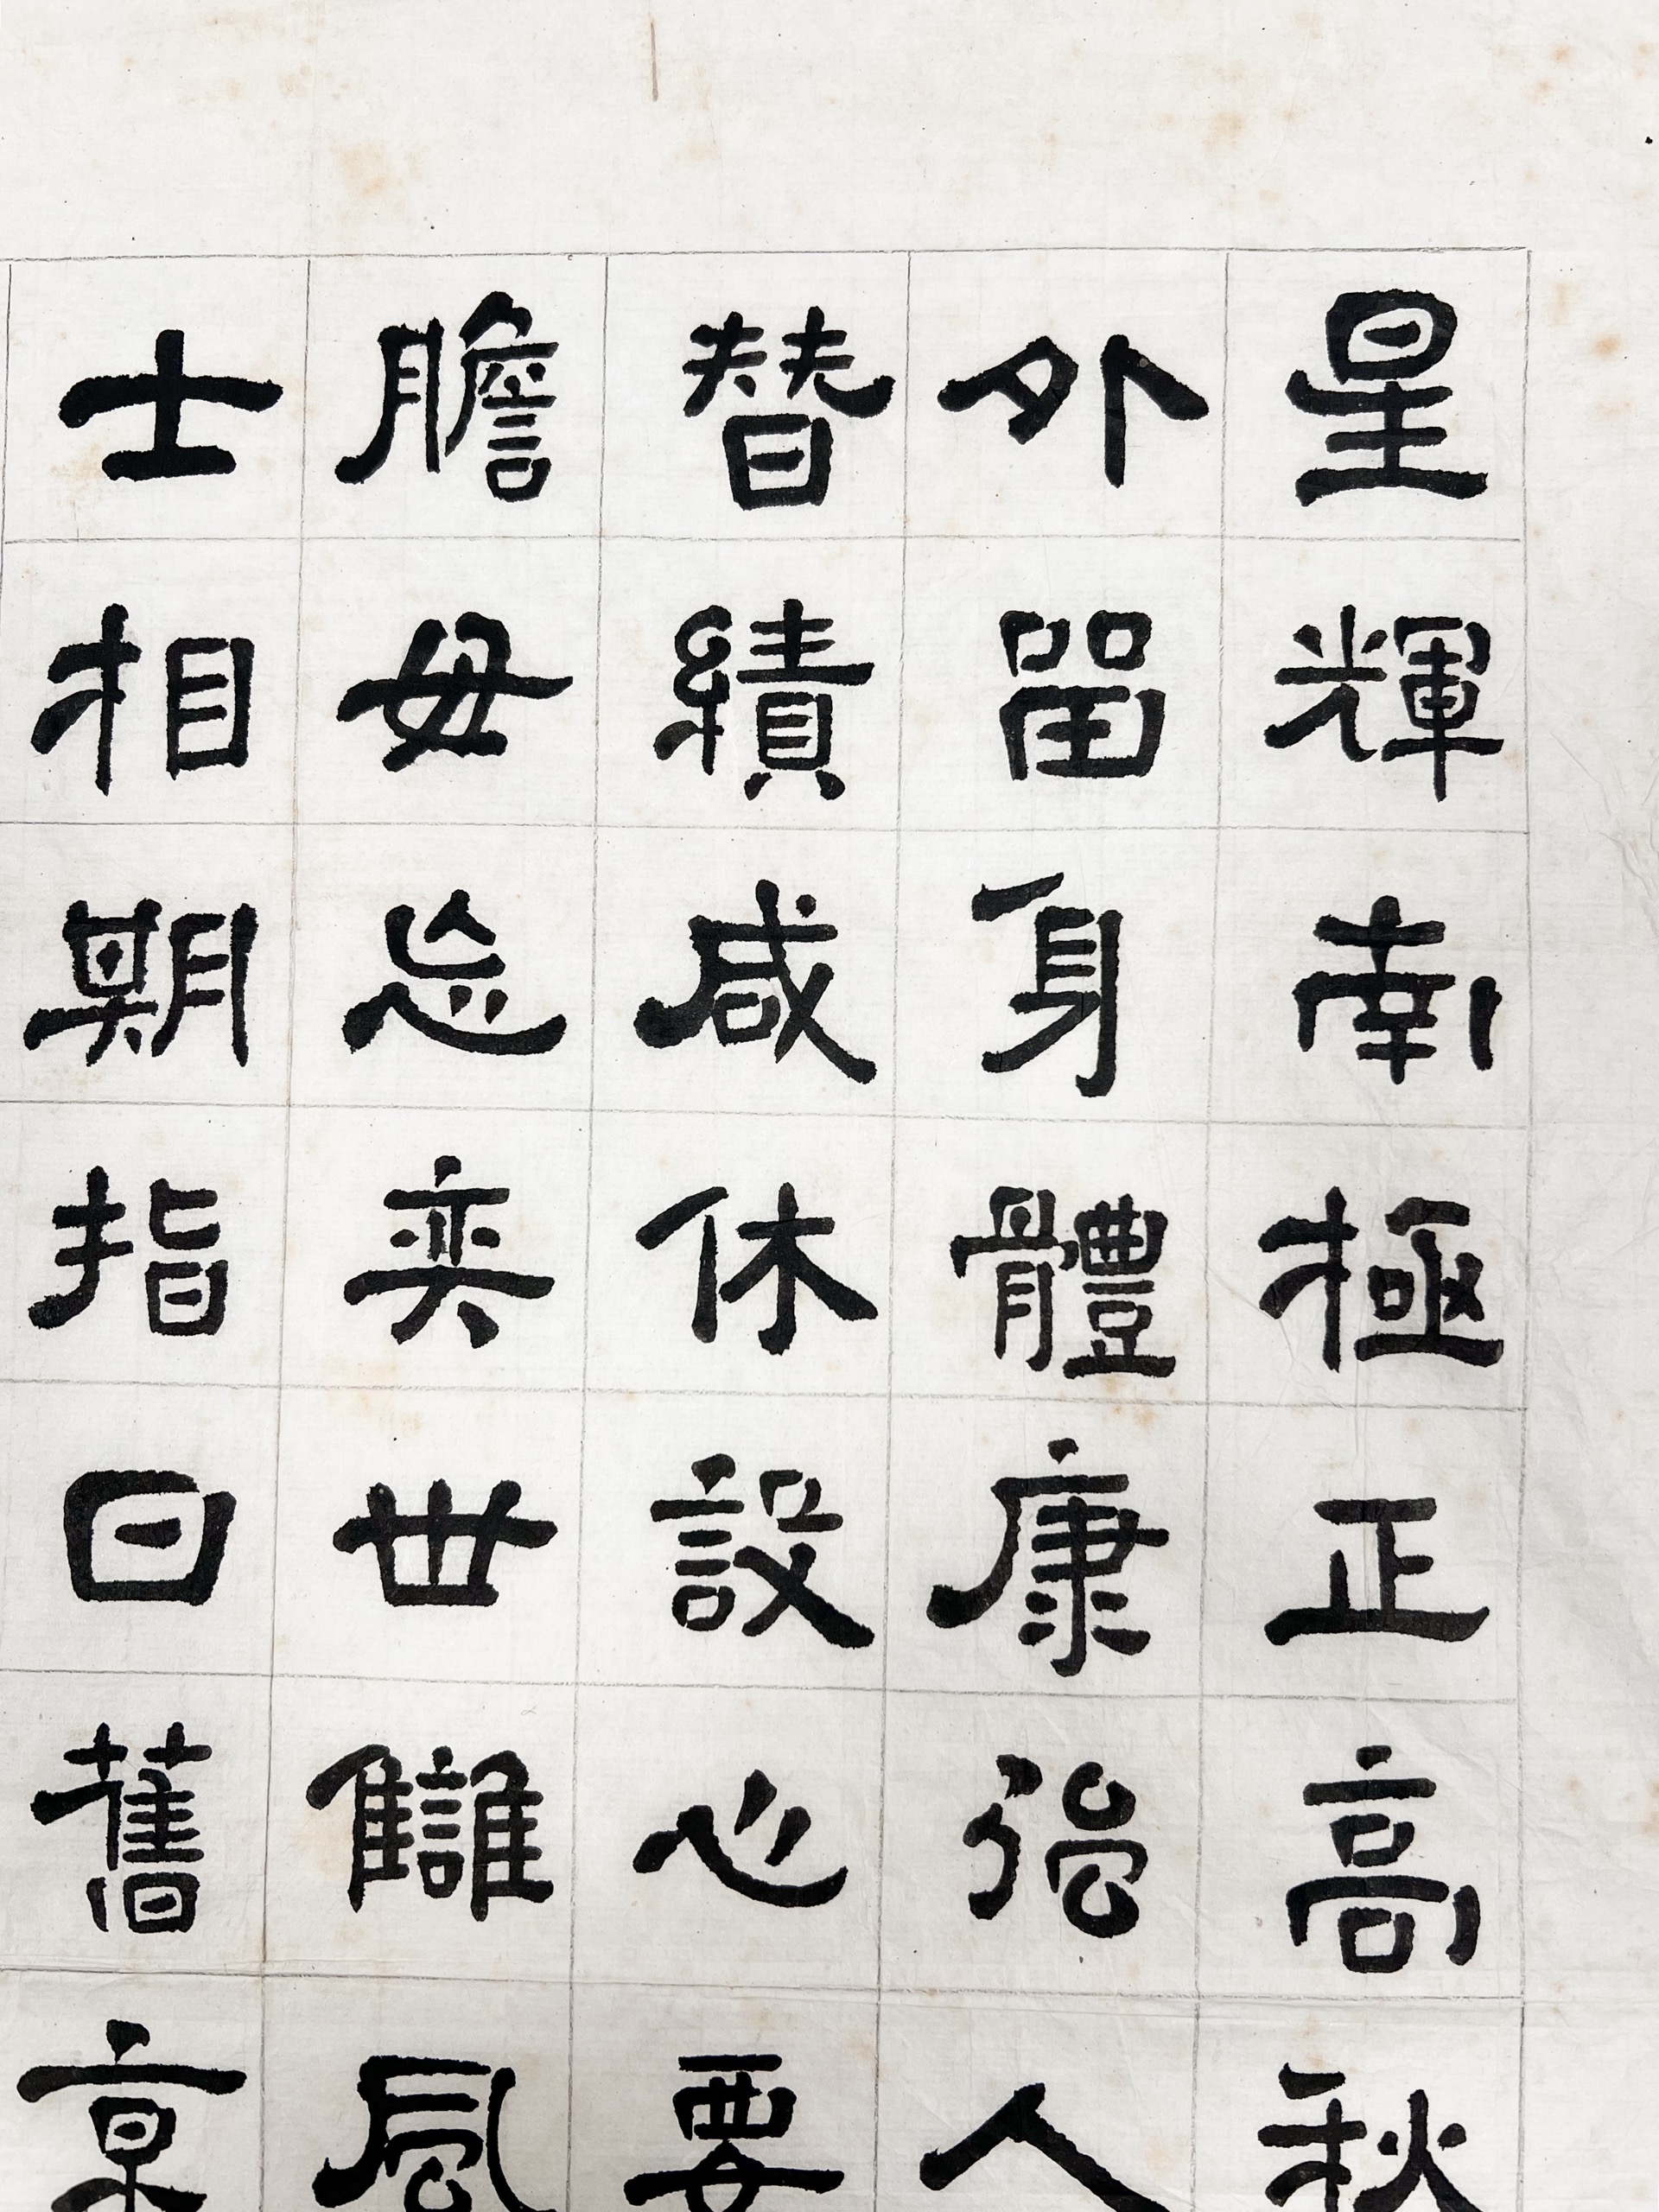 星輝南極正高秋
外留身體康強人
替績咸休設心要
膽毋忘奕世讎風
士相期指日舊京